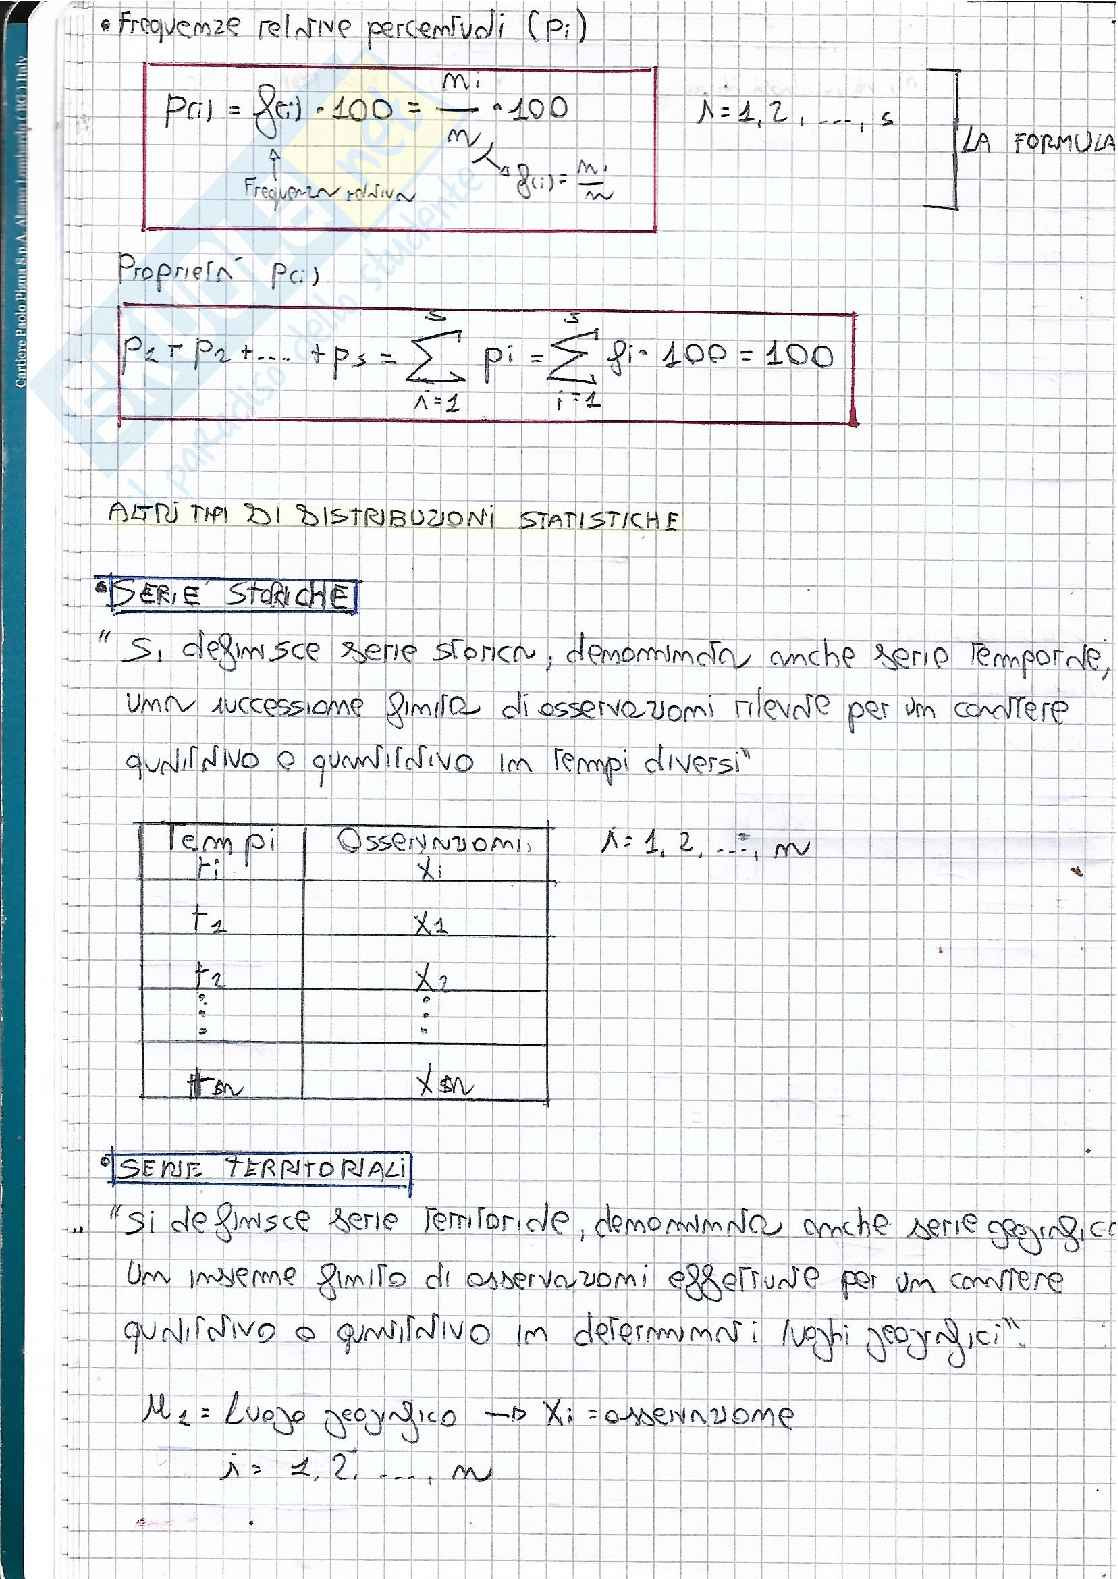 • Frequenze relative percentuali (pi)
p(i) = f(i) · 100 = ni/n · 100   i = 1, 2, ..., s   LA FORMULA
f(i) = ni/n
Frequenza relativa
Proprietà p(i)
p1 + p2 + .... + ps = Σ(i=1, s) pi = Σ(i=1, s) fi · 100 = 100
ALTRI TIPI DI DISTRIBUZIONI STATISTICHE
• SERIE STORICHE
" Si definisce serie storica, denominata anche serie temporale,
una successione finita di osservazioni rilevate per un carattere
qualitativo o quantitativo in tempi diversi"
Tempi   Osservazioni   i = 1, 2, ..., n
ti   xi
t1   x1
t2   x2
tn   xn
• SERIE TERRITORIALI
"Si definisce serie territoriale, denominata anche serie geografica
un insieme finito di osservazioni effettuate per un carattere
qualitativo o quantitativo in determinati luoghi geografici".
M1 = Luogo geografico → xi = osservazione
i = 1, 2, ..., n
Cartiere Paolo Pigna S.p.A. Alzano Lombardo ( BG ) Italy
il paradiso dello studente